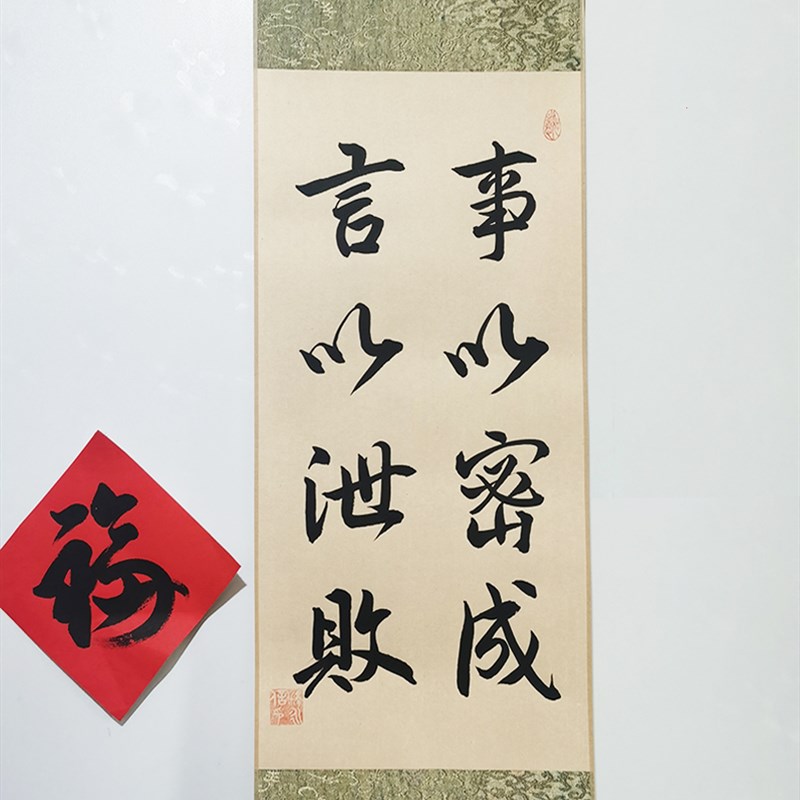 事以密成
言以泄敗
福